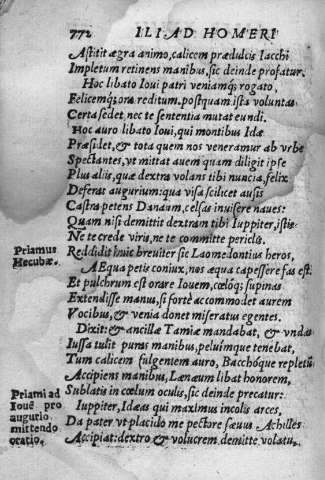 772 ILIAD HOMERI
Astitit ægra animo, calicem prædulcis Iacchi
Impletum retinens manibus, sic deinde profatur.
Hoc libato Ioui patri veniamq; rogato,
Felicemq; ora reditum, postquam ista voluntas
Certa sedet, nec te sententia mutat eundi.
Hoc auro libato Ioui, qui montibus Idæ
Præsidet, & tota quem nos veneramur ab vrbe
Spectantes, vt mittat auem quam diligit ipse
Plus aliis, quæ dextra volans tibi nuncia, felix
Deferat augurium: qua visa scilicet ausis
Castra petens Danaum, celsas inuisere naues:
Quam nisi demittit dextram tibi Iuppiter, istis
Ne te crede viris, ne te committe periclo.
Priamus Hecubæ.
Reddidit huic breuiter sic Laomedontius heros,
AEqua petis coniux, nos æqua capessere fas est:
Et pulchrum est orare Iouem, cœloq; supinas
Extendisse manus, si fortè accommodet aurem
Vocibus, & venia donet miseratus egentes.
Dixit: & ancillæ Tamiæ mandabat, & vndas
Iussa tulit puras manibus, peluimque tenebat,
Tum calicem fulgentem auro, Bacchóque repletū
Accipiens manibus, Lenæum libat honorem,
Priami ad Iouē pro augurio mittendo oratio.
Sublatis in cœlum oculis, sic deinde precatur:
Iuppiter, Idæas qui maximus incolis arces,
Da pater vt placido me pectore sæuus Achilles
Accipiat: dextro & volucrem demitte volatu,